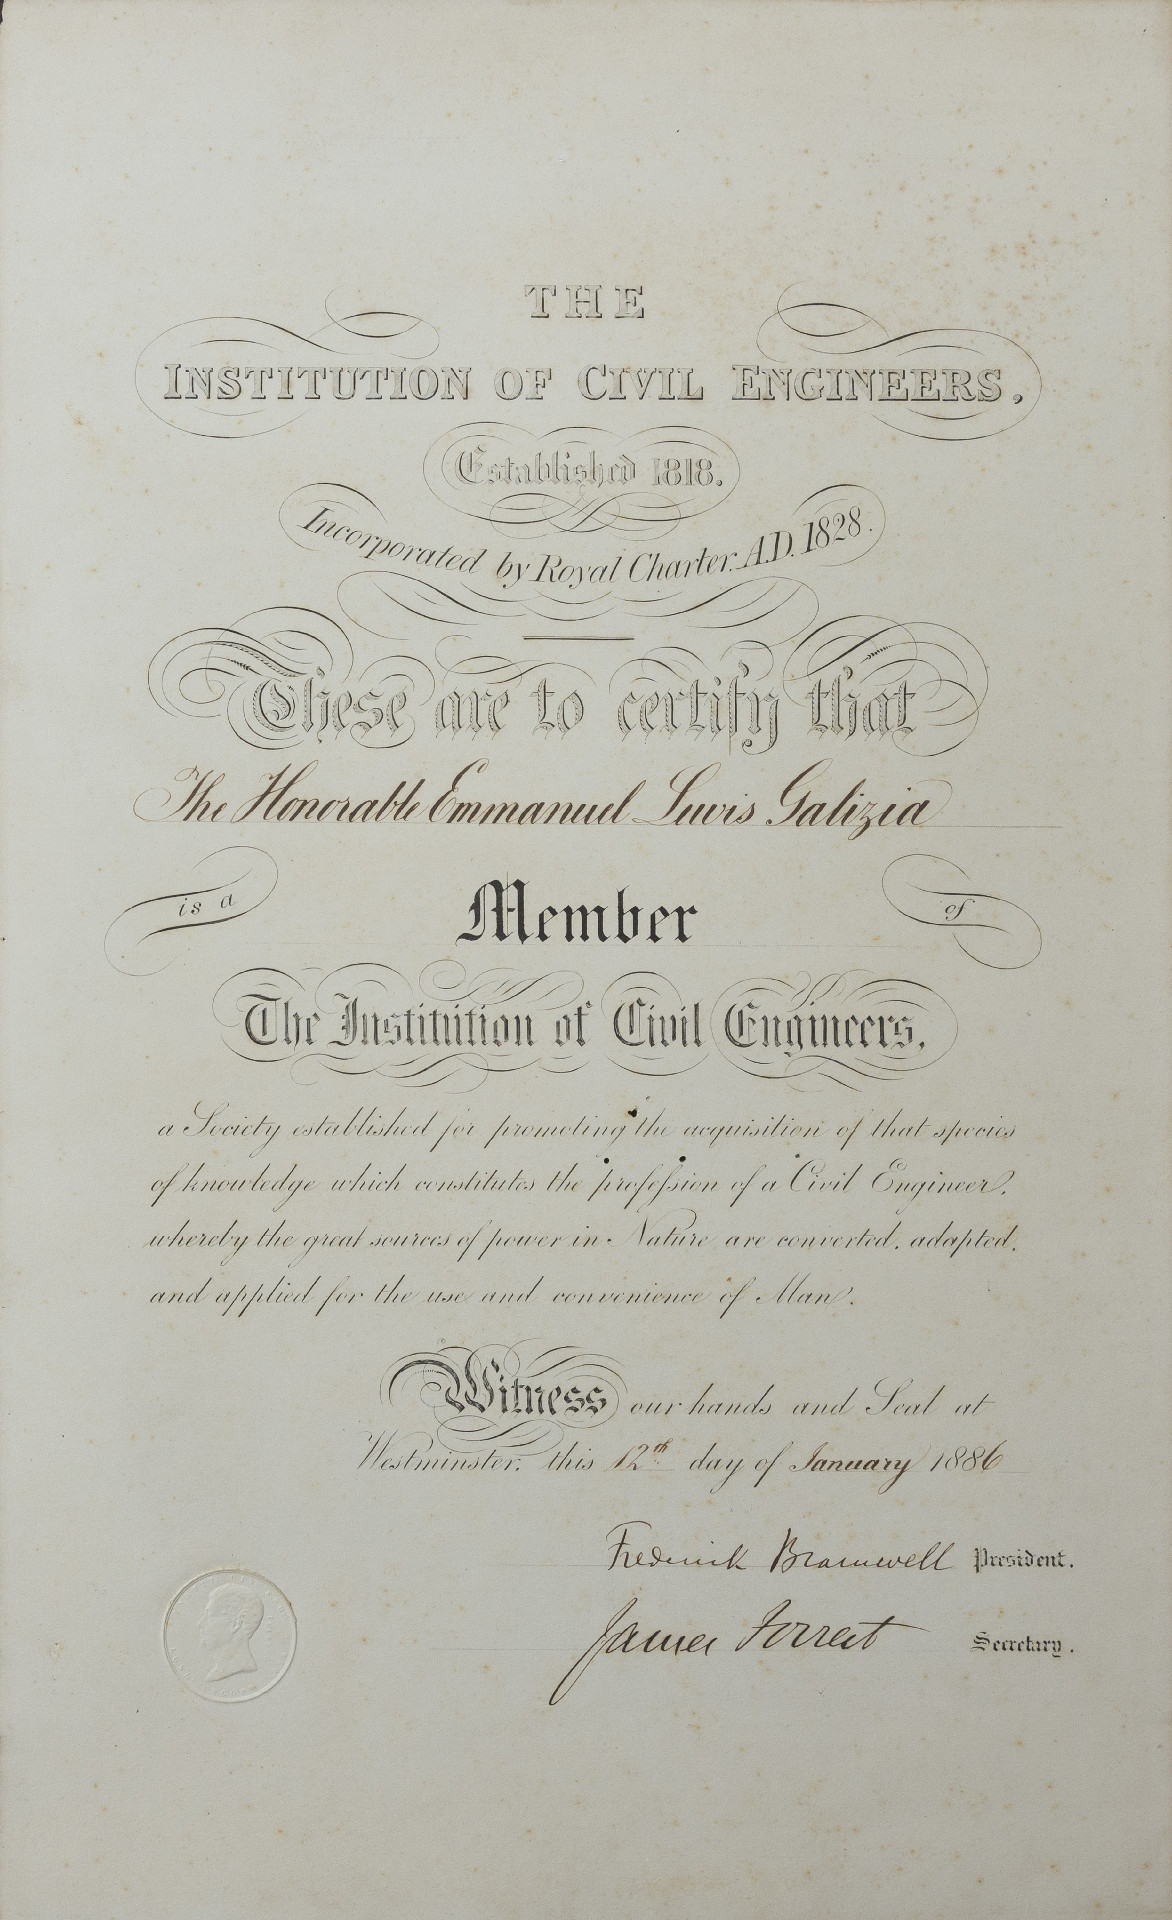 THE
INSTITUTION OF CIVIL ENGINEERS,
Established 1818.
Incorporated by Royal Charter. A.D. 1828.
These are to certify that
The Honorable Emmanuel Lewis Galizia
is a Member of
The Institution of Civil Engineers,
a Society established for promoting the acquisition of that species
of knowledge which constitutes the profession of a Civil Engineer,
whereby the great sources of power in Nature are converted, adapted,
and applied for the use and convenience of Man.
Witness our hands and Seal at
Westminster, this 12th day of January 1886
Frederick Bramwell President.
James Forrest Secretary.